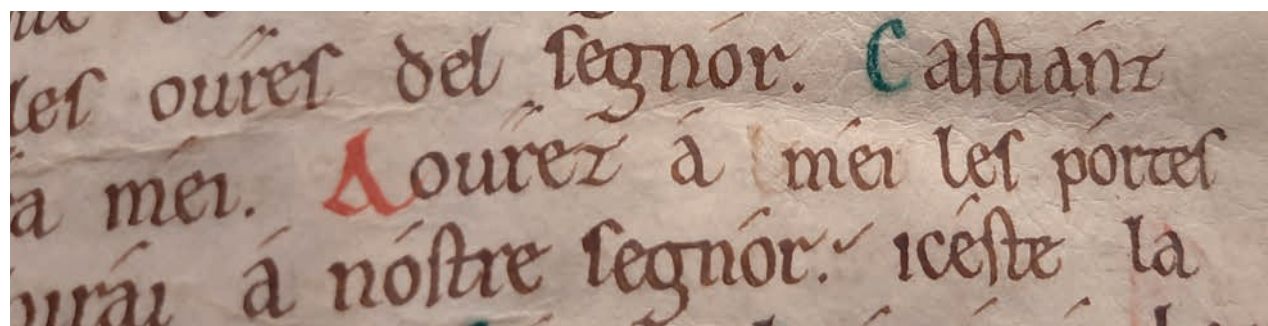 les oures del segnór. Castiánz
a méi. Aourez á méi les pórtes
urái á nóstre segnór. icéste la